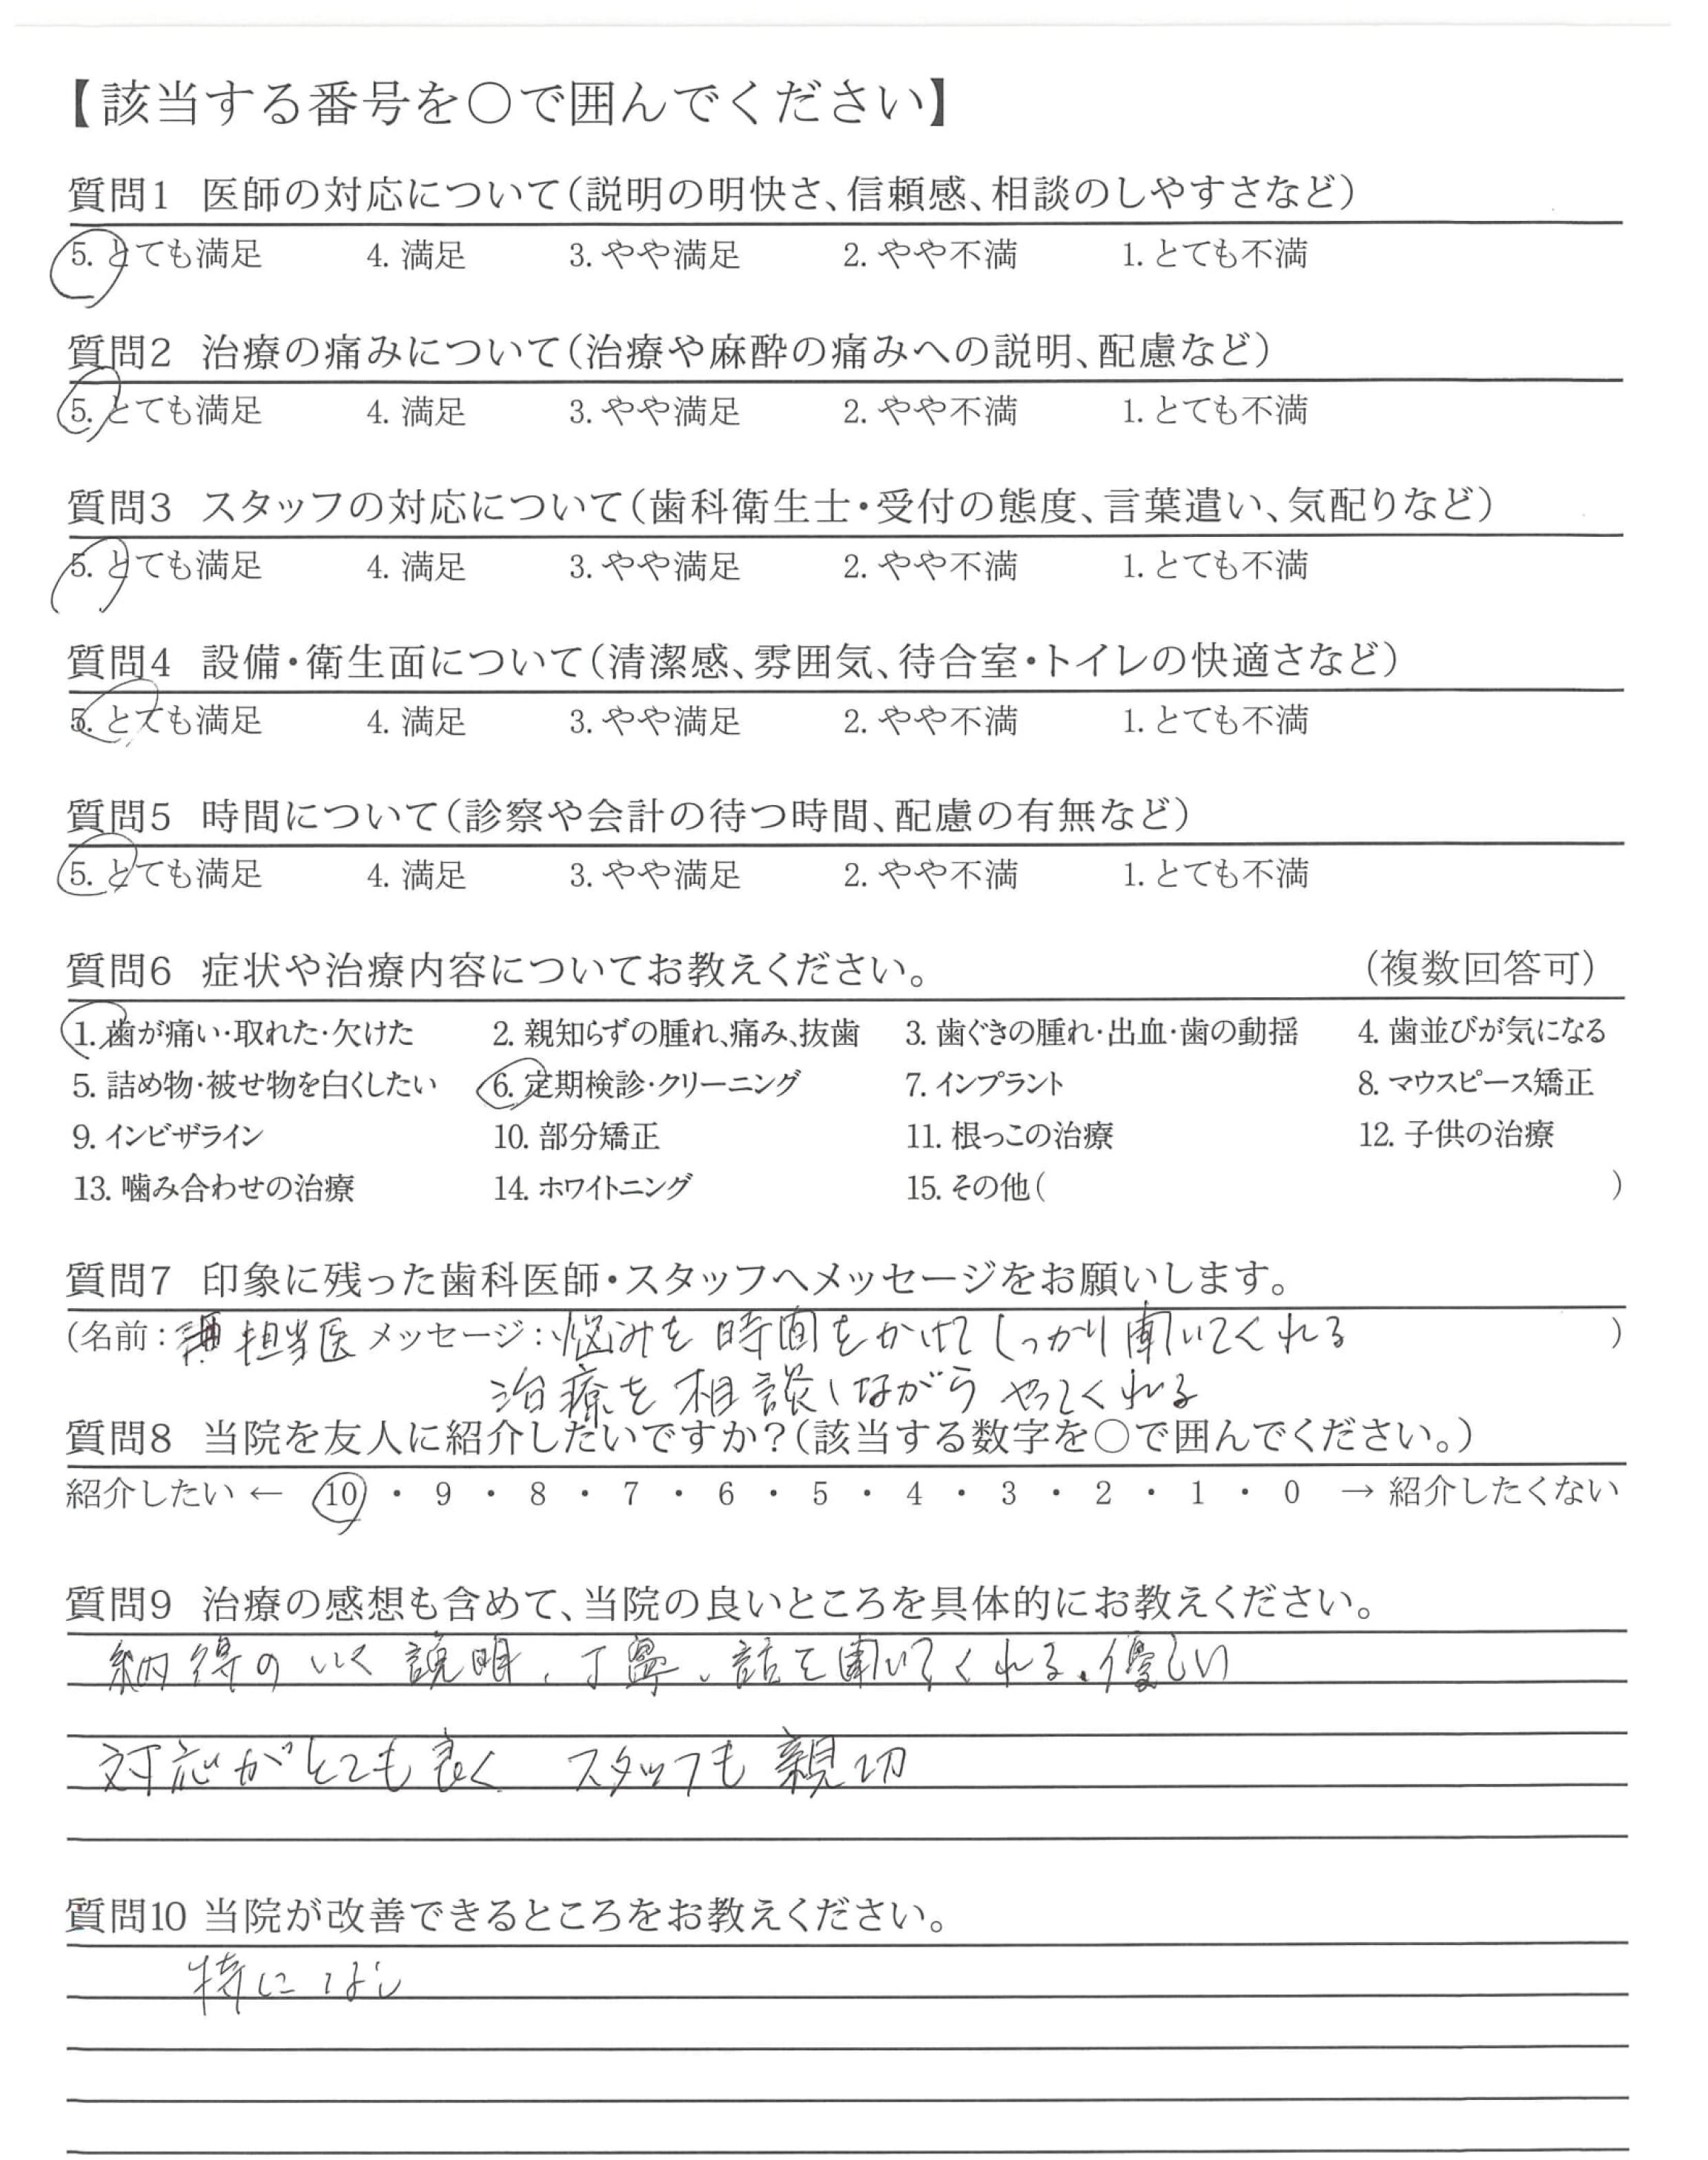 【該当する番号を○で囲んでください】
質問1 医師の対応について(説明の明快さ、信頼感、相談のしやすさなど)
5. とても満足 4. 満足 3. やや満足 2. やや不満 1. とても不満
質問2 治療の痛みについて(治療や麻酔の痛みへの説明、配慮など)
5. とても満足 4. 満足 3. やや満足 2. やや不満 1. とても不満
質問3 スタッフの対応について(歯科衛生士・受付の態度、言葉遣い、気配りなど)
5. とても満足 4. 満足 3. やや満足 2. やや不満 1. とても不満
質問4 設備・衛生面について(清潔感、雰囲気、待合室・トイレの快適さなど)
5. とても満足 4. 満足 3. やや満足 2. やや不満 1. とても不満
質問5 時間について(診察や会計の待つ時間、配慮の有無など)
5. とても満足 4. 満足 3. やや満足 2. やや不満 1. とても不満
質問6 症状や治療内容についてお教えください。 (複数回答可)
1. 歯が痛い・取れた・欠けた 2. 親知らずの腫れ、痛み、抜歯 3. 歯ぐきの腫れ・出血・歯の動揺 4. 歯並びが気になる
5. 詰め物・被せ物を白くしたい 6. 定期検診・クリーニング 7. インプラント 8. マウスピース矯正
9. インビザライン 10. 部分矯正 11. 根っこの治療 12. 子供の治療
13. 噛み合わせの治療 14. ホワイトニング 15. その他( )
質問7 印象に残った歯科医師・スタッフへメッセージをお願いします。
(名前: 担当医 メッセージ: 悩みを時間をかけてしっかり聞いてくれる )
治療を相談しながらやってくれる
質問8 当院を友人に紹介したいですか?(該当する数字を○で囲んでください。)
紹介したい ← 10 ・ 9 ・ 8 ・ 7 ・ 6 ・ 5 ・ 4 ・ 3 ・ 2 ・ 1 ・ 0 → 紹介したくない
質問9 治療の感想も含めて、当院の良いところを具体的にお教えください。
納得のいく説明、丁寧、話を聞いてくれる、優しい
対応がとても良く スタッフも親切
質問10 当院が改善できるところをお教えください。
特になし